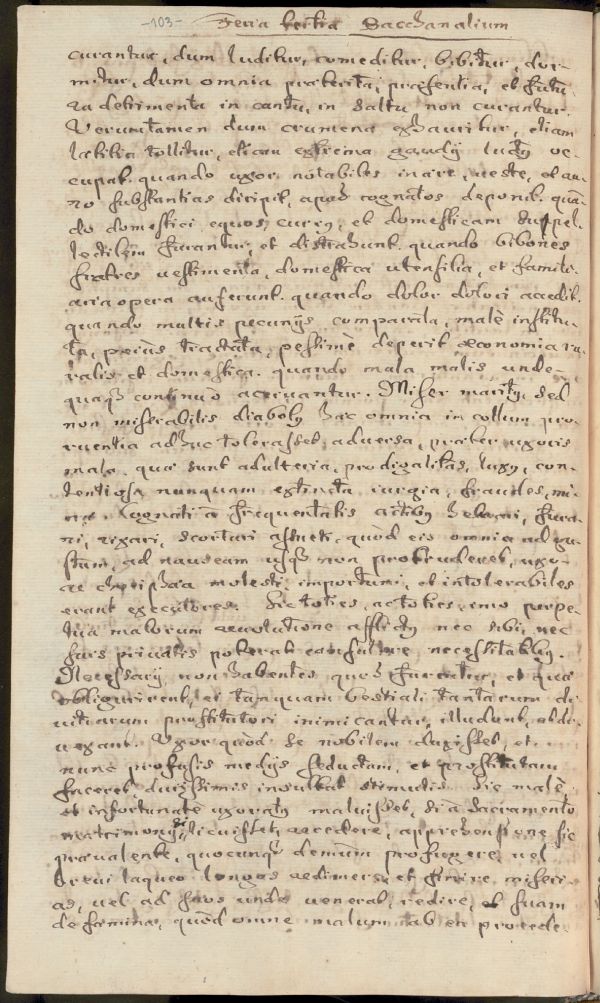 -103- Feria tertia Bacchanalium
curantur, dum luditur, comeditur, bibitur, dor-
mitur, dum omnia præterita, præsentia, et futu
ra detrimenta in cantu, in saltu non curantur.
Verumtamen dum crumena exhauritur, etiam
lætitia tollitur, etiam extrema gaudij luctus oc-
cupat. quando uxor notabiles in ære, veste, et au-
ro substantias diripit, apud cognatos deponit. quan
do domestici equos, currus, et domesticam supel-
lectilem furantur, et distrahunt. quando bibones
fratres vestimenta, domestica utensilia, et
opera auferunt. quando dolor dolori accedit.
quando multis pecunijs comparata, malè institu-
ta, peius tractata, pessimè deperit œconomia ru-
ralis et domestica. quando mala malis unde-
quaque continuò acervantur. Miser maritus, sed
non miserabilis diabolus hæc omnia in collum pro-
ruentia adhuc tolerasset adversa, præter uxoris
mala, quæ sunt adulteria, prodigalitas, luxus, con-
tentiosa nunquam extincta iurgia, fraudes, mi-
næ. Cognati à frequentatis
ni, rixari, scortari assueti, quòd eis omnia ad gu-
stum, ad nauseam usque non protruderet, uxo-
molesti, importuni, et intolerabiles
erant exectores. Sic toties, ac toties, imo perpe-
tua malorum revolutione afflictus nec sibi, nec
suis privatis poterat consulere necessitatibus.
Necessarij non habentes quod furentur, et quod
obligurirent, ei tanquam bestiali tantarum di-
vitiarum prostitutori inimicantur, illudunt, et di-
vexant. Uxor quòd se nobilem duxisset, et
nunc profusis medijs seductam, et prostitutam
faceret durissimis insultat stimulis. Sic malè,
et infortunatè uxoratus maluisset, si à Sacramento
matrimonij si licuisset, recedere, apprehensione sic
prævalente, quocunque demum profugere, vel
brevi laqueo longas redimere, et finire miseri-
as, vel ad suos unde venerat, redire, et suam
de fæmina, quòd omne malum ab ea procede-